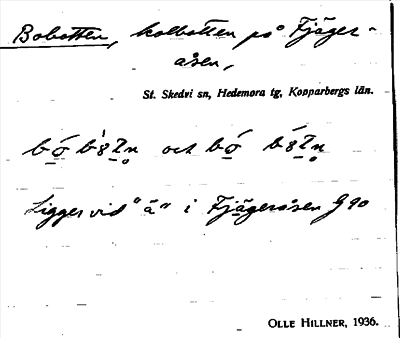 Bobotten, kolbotten på Fjäger-
åsen,
St. Skedvi sn, Hedemora tg, Kopparbergs län.
och
Ligger vid "ä" i Fjägeråsen G 90
OLLE HILLNER, 1936.